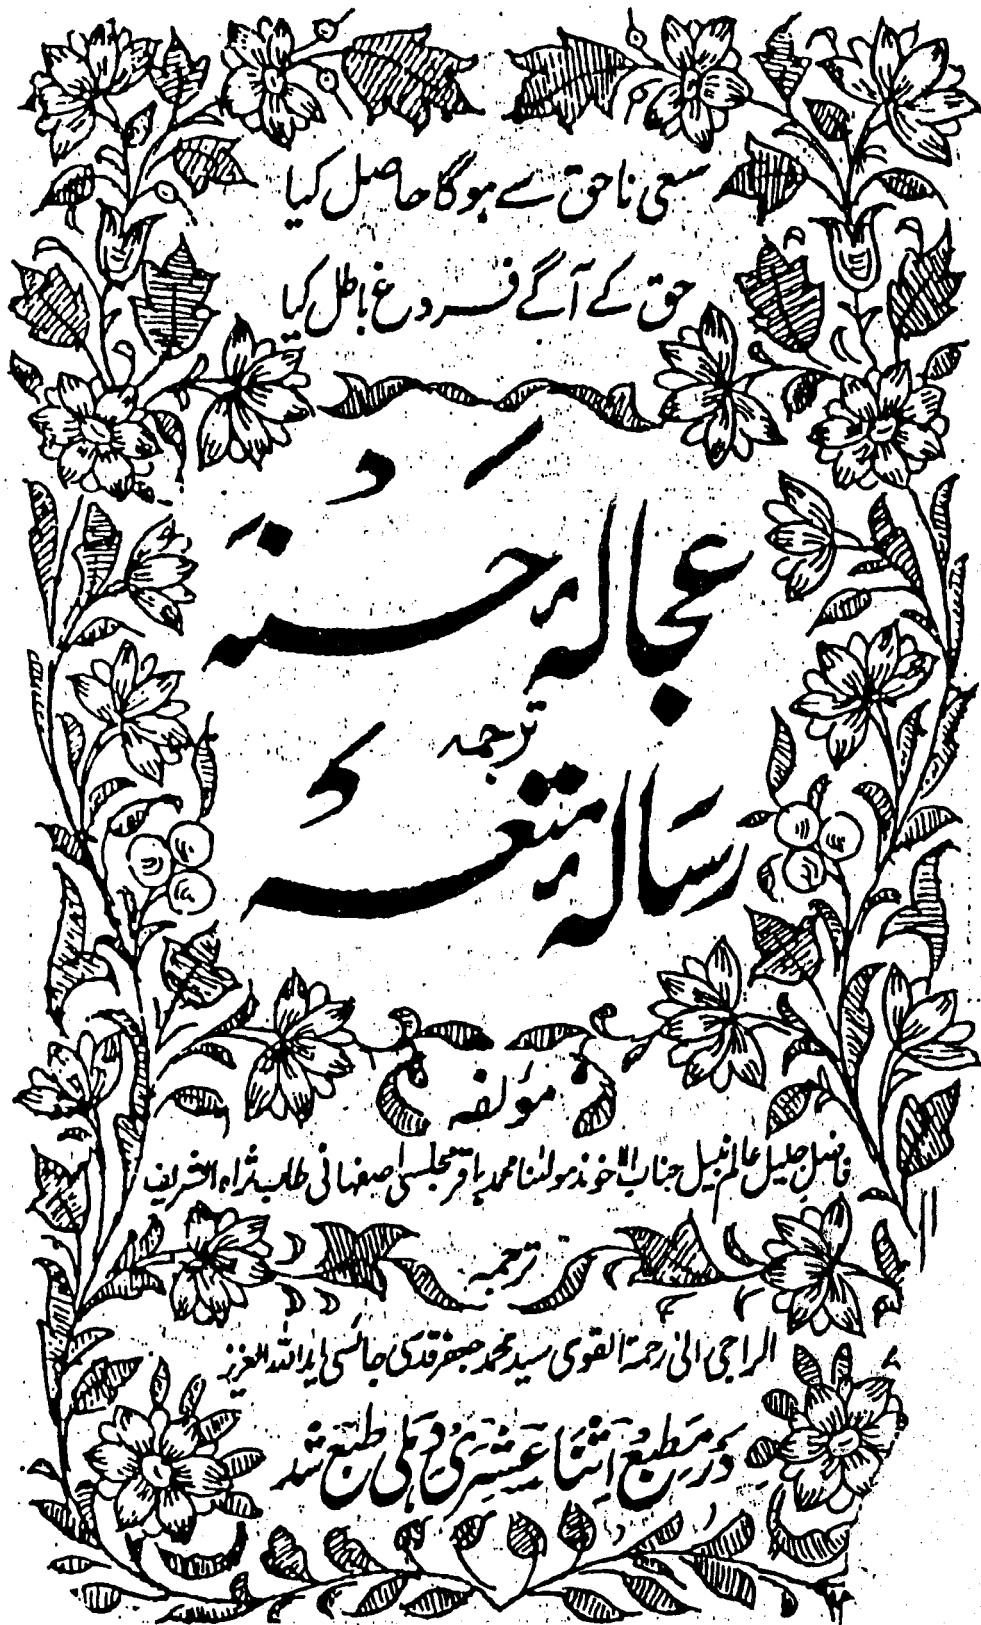 سعی ناحق سے ہوگا حاصل کیا
حق کے آگے فروغ باطل کیا
عجالۂ حسنہ
ترجمہ
رسالۂ متعہ
مؤلفہ
فاضل جلیل عالم نبیل جناب آخوند مولٰنا محمد باقر مجلسی اصفہانی طاب ثراہ الشریف
ترجمہ
الراجی الی رحمۃ القوی سید محمد جعفر قدسی جائسی ایدہ اللہ العزیز
در مطبع اثنا عشری دہلی طبع شد